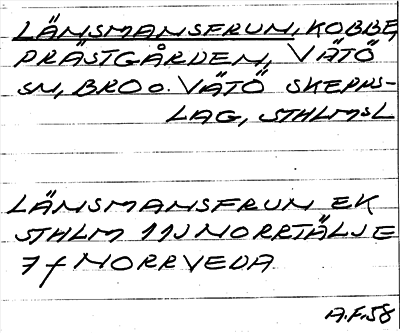 LÄNSMANSFRUN, KOBBE,
PRÄSTGÅRDEN, VÄTÖ
SN, BRO O. VÄTÖ SKEPPS-
LAG, STHLMSL
LÄNSMANSFRUN EK
STHLM 11J NORRTÄLJE
7f NORRVEDA
A.F.58